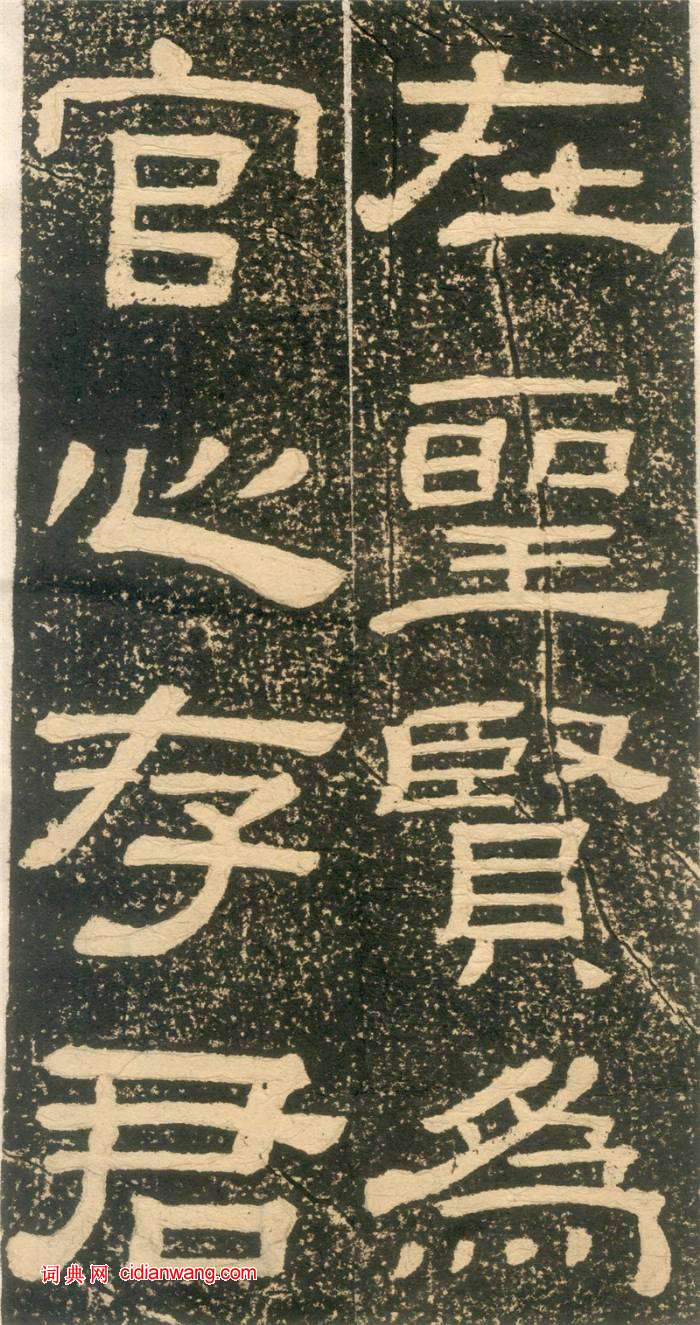 在聖賢爲
官心存君
词典网 cidianwang.com